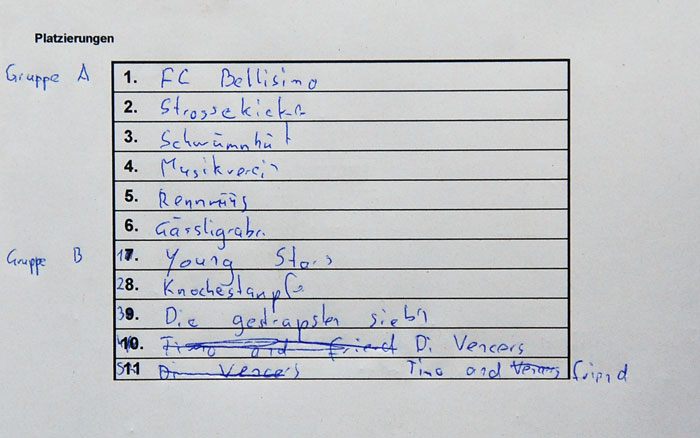 Platzierungen
Gruppe A
1. FC Bellisimo
2. Strossekicker
3. Schwümmhüt
4. Musikverein
5. Rennmüüs
6. Gässligrabe
Gruppe B
17. Young Stars
28. Knochestampf
39. Die gestrapsten siebn
10. Timo and friend Di Vencers
11 Di Vencers Timo and friend